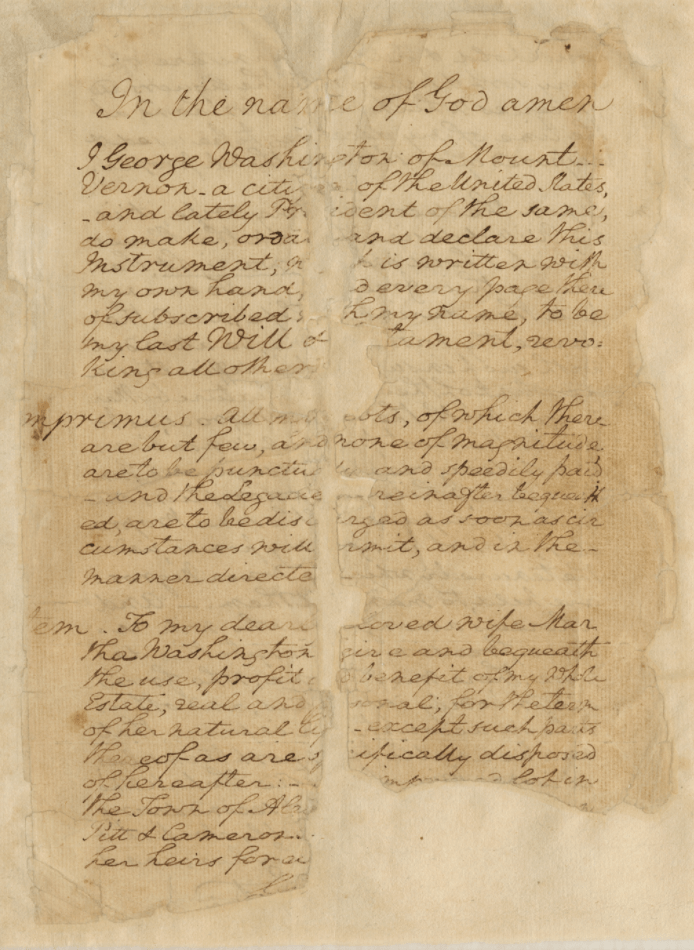 In the name of God amen
I George Washington of Mount
Vernon - a citizen of the United States,
- and lately President of the same,
do make, ordain and declare this
Instrument, is written with
my own hand, and every page there
of subscribed with my name, to be
my last Will & tament, revo:
king all others
mprimus . All my debts, of which there
are but few, and none of magnitude
are to be punctu and speedily paid
- and the Legacies reinafter bequeath
ed, are to be discharged as soon as cir
cumstances will permit, and in the -
manner directe
tem . To my dear loved wife Mar
tha Washington give and bequeath
the use, profit benefit of my whole
Estate, real and sonal, for the term
of her natural life - except such parts
thereof as are specifically disposed
of hereafter : - lot in
the Town of Alex
Pitt & Cameron
her heirs for